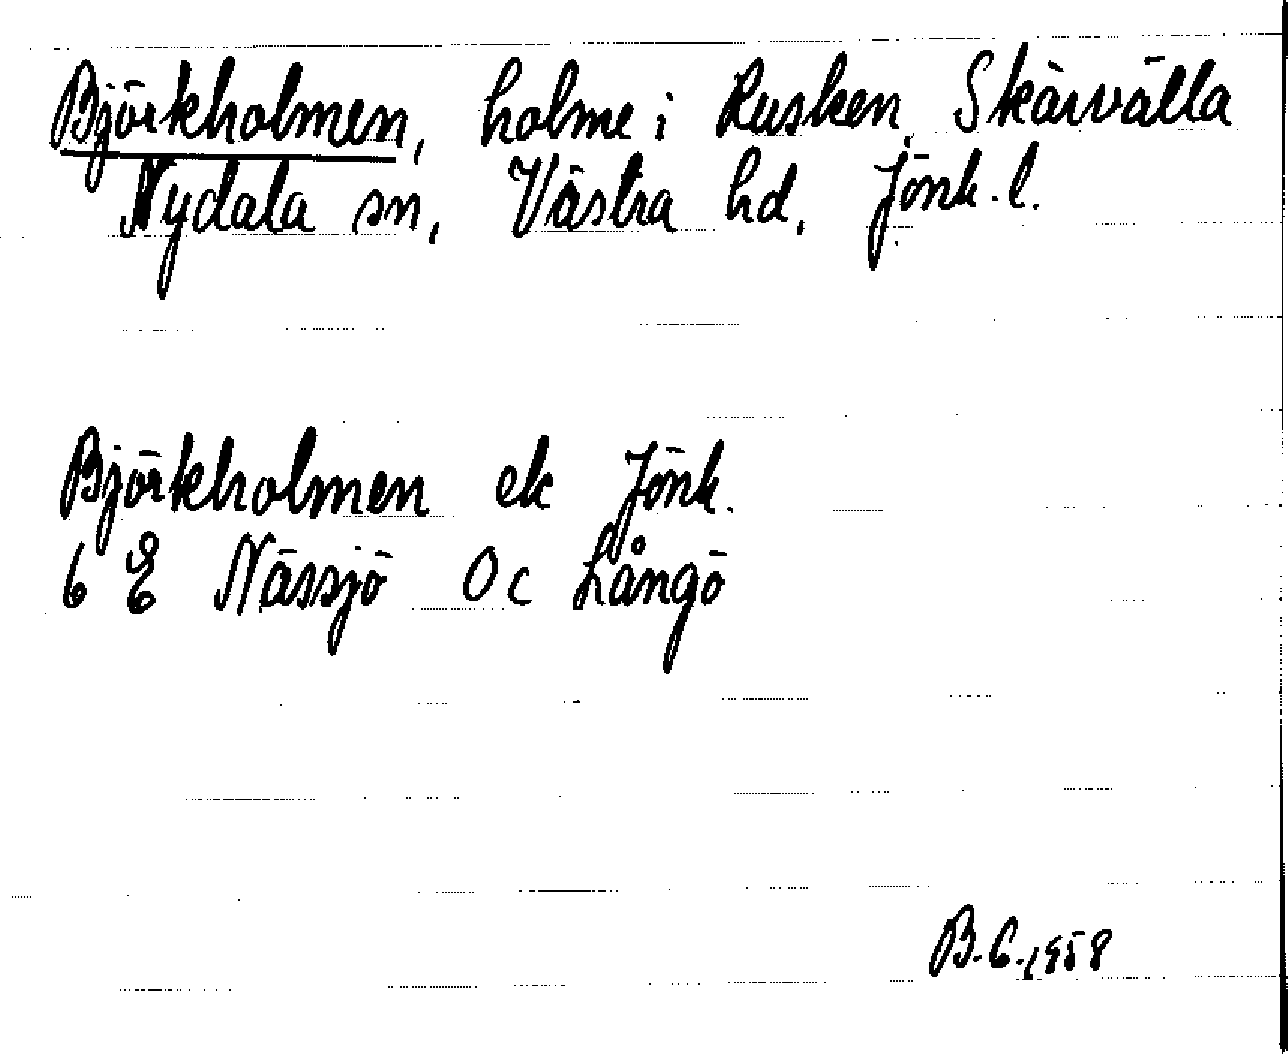 Björkholmen, holme i Rusken, Skärvälla
Nydala sn, Västra hd, Jönk. l.
Björkholmen ek Jönk.
6 E Nässjö 0 c Långö
B. G. 1958